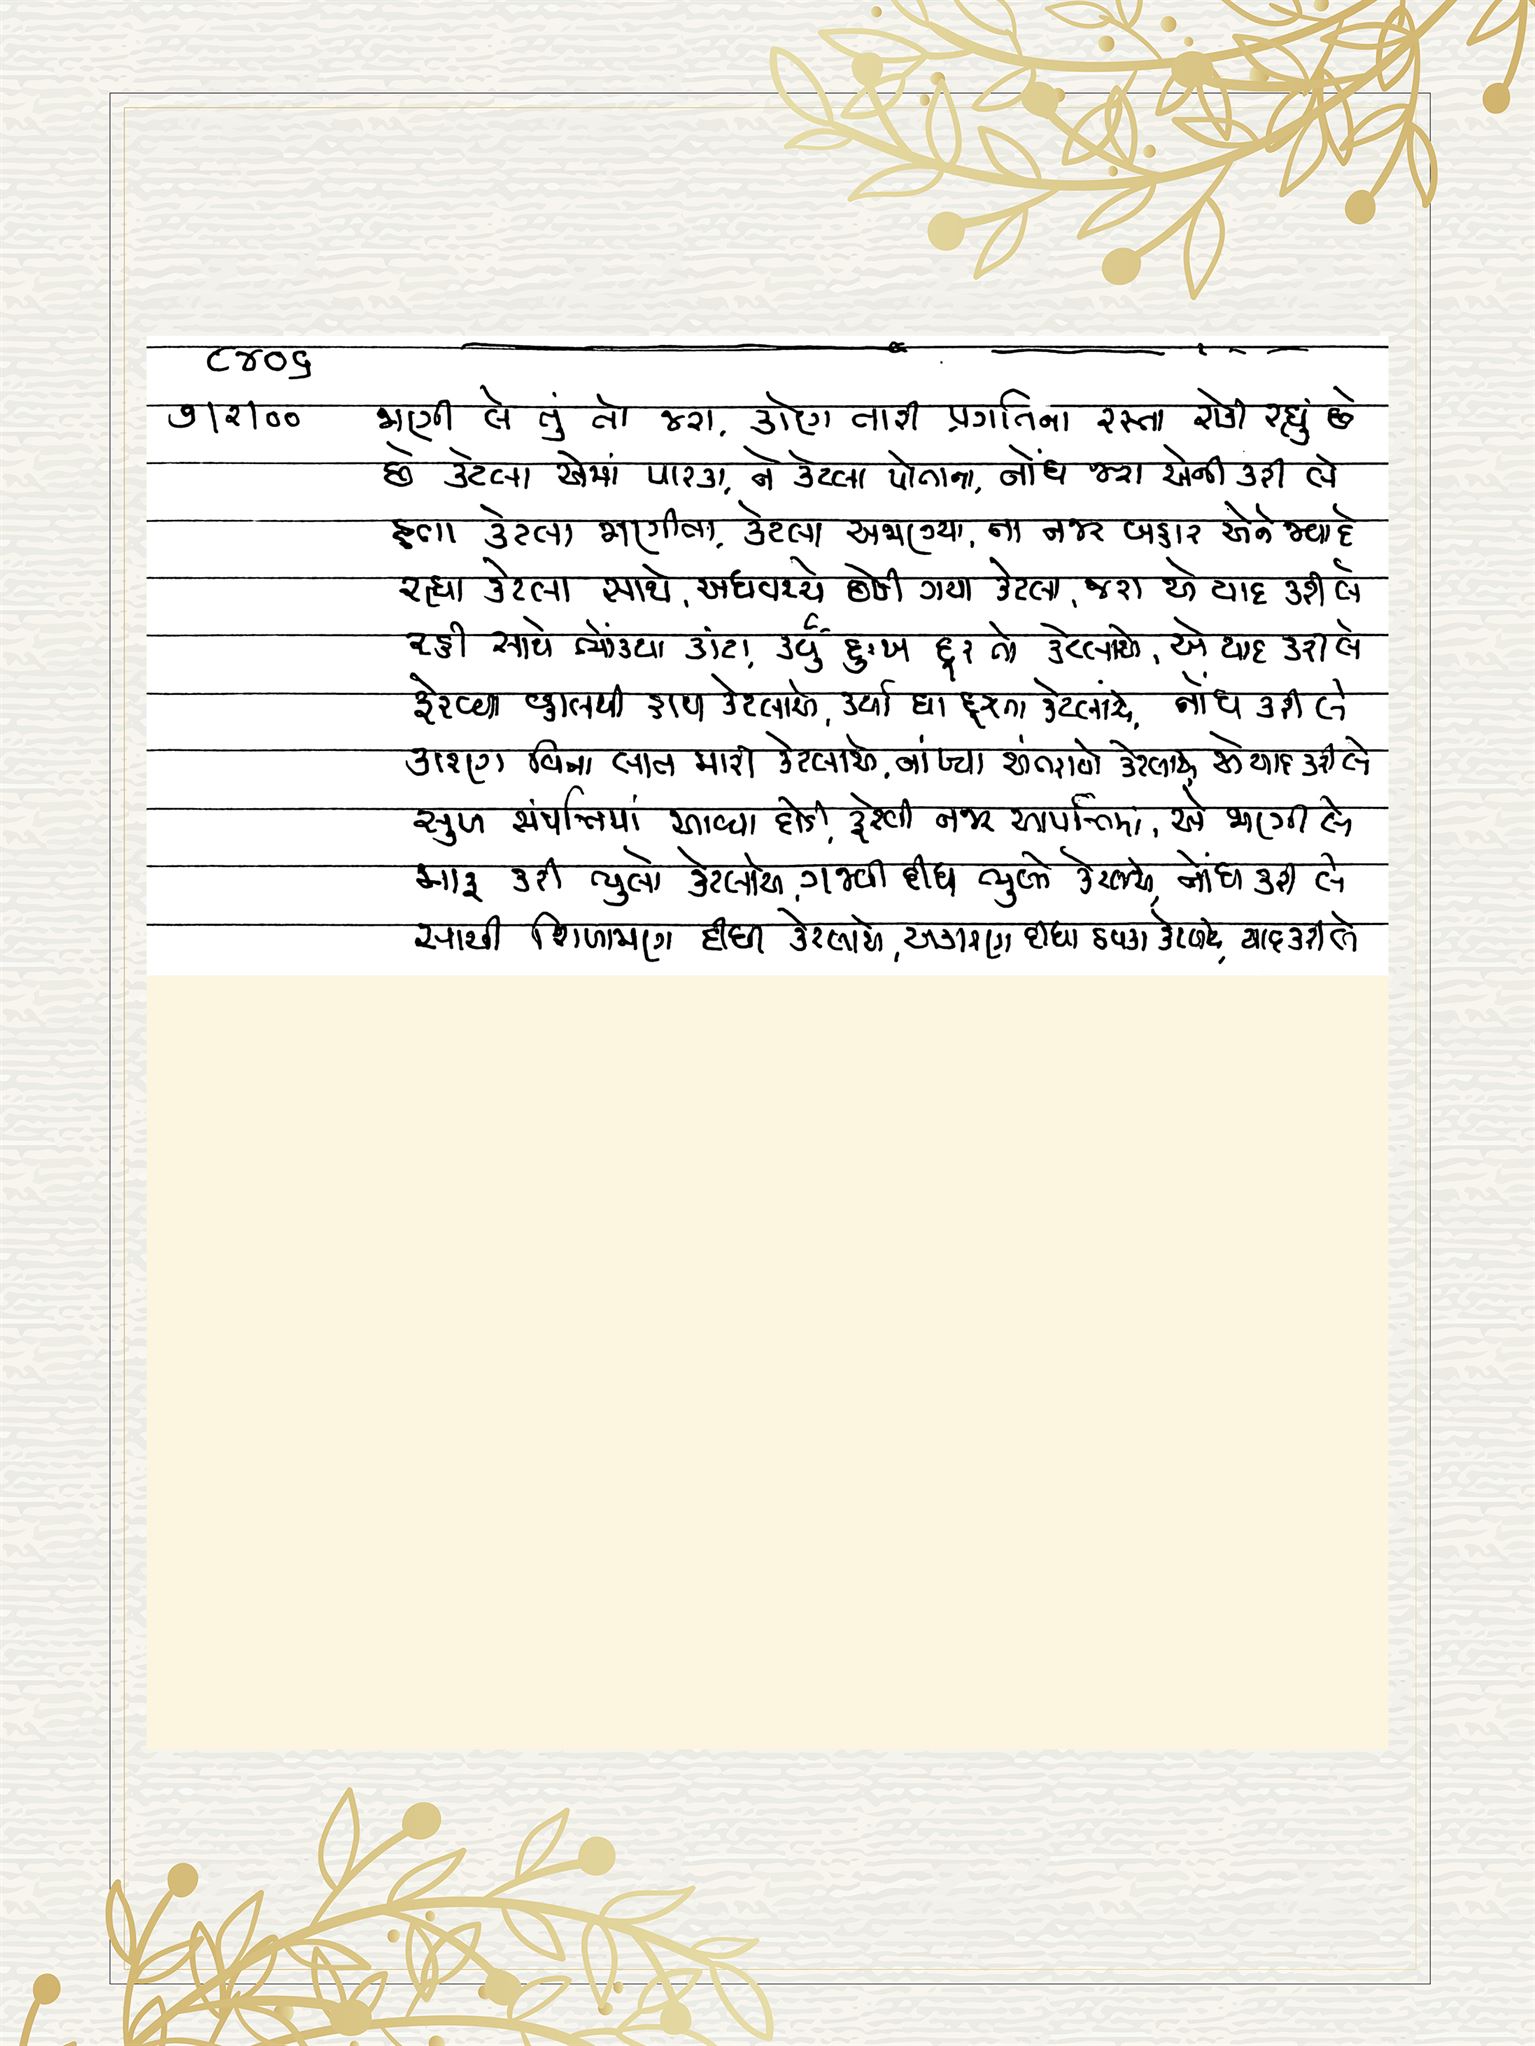 ૮૪૦૬
૭/૨/૦૦ જાણી લે તું તો જરા, કોણ તારી પ્રગતિના રસ્તા રોકી રહ્યું છે
છે કેટલા એમાં પારકા, ને કેટલા પોતાના, નોંધ જરા એની કરી લે
હતા કેટલા જાણીતા, કેટલા અજાણ્યા, ના નજર બહાર એને જવા દે
રહ્યા કેટલા સાથે, અધવચ્ચે છોડી ગયા કેટલા, જરા એ યાદ કરી લે
રહી સાથે ભોંક્યા કાંટા, કર્યું દુઃખ દૂર તો કેટલાએ, એ યાદ કરી લે
ફેરવ્યા વ્હાલથી હાથ કેટલાએ, કર્યા ઘા દૂરતા કેટલાંએ, નોંધ કરી લે
કારણ વિના લાત મારી કેટલાએ, નાંખ્યા અંતરાયો કેટલાએ, એ યાદ કરી લે
સુખ સંપત્તિમાં આવ્યા દોડી, ફેરવી નજર આપત્તિમાં, એ જાણી લે
માફ કરી ભુલો કેટલાએ, ગજવી દીધી ભુલો કેટલાએ, નોંધ કરી લે
સાચી શિખામણ દીધી કેટલાએ, અકારણ દીધા ઠપકા કેટલાએ, યાદ કરી લે